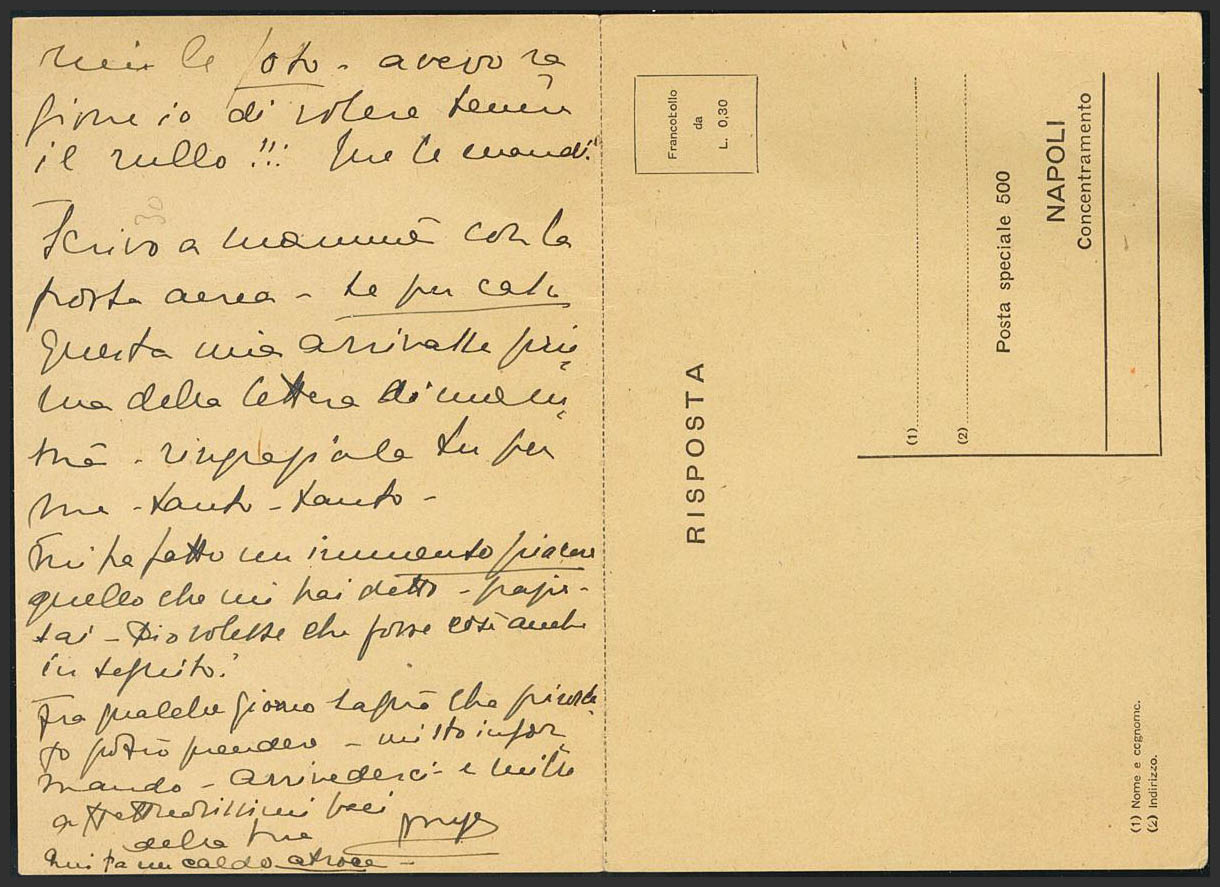 le foto - avevo ra
gione io di volere tenere
il rullo!!! Me le mandi?
Scrivo a mammà con la
posta aerea - se per caso
questa mia arrivasse pri=
ma della lettera di mam=
mà - ringraziala tu per
me - tanto - tanto -
Mi ha fatto un immenso piacere
quello che mi hai detto -
- Dio volesse che fosse così anche
in seguito!
Fra qualche giorno saprò che
potrò prendere - mi sto infor
mando - arrivederci - e mille
affettuosissimi baci
dalla tua
Qui fa un caldo atroce -
30
Francobollo
da
L. 0,30
RISPOSTA
(1)
(2)
Posta speciale 500
NAPOLI
Concentramento
(1) Nome e cognome.
(2) Indirizzo.